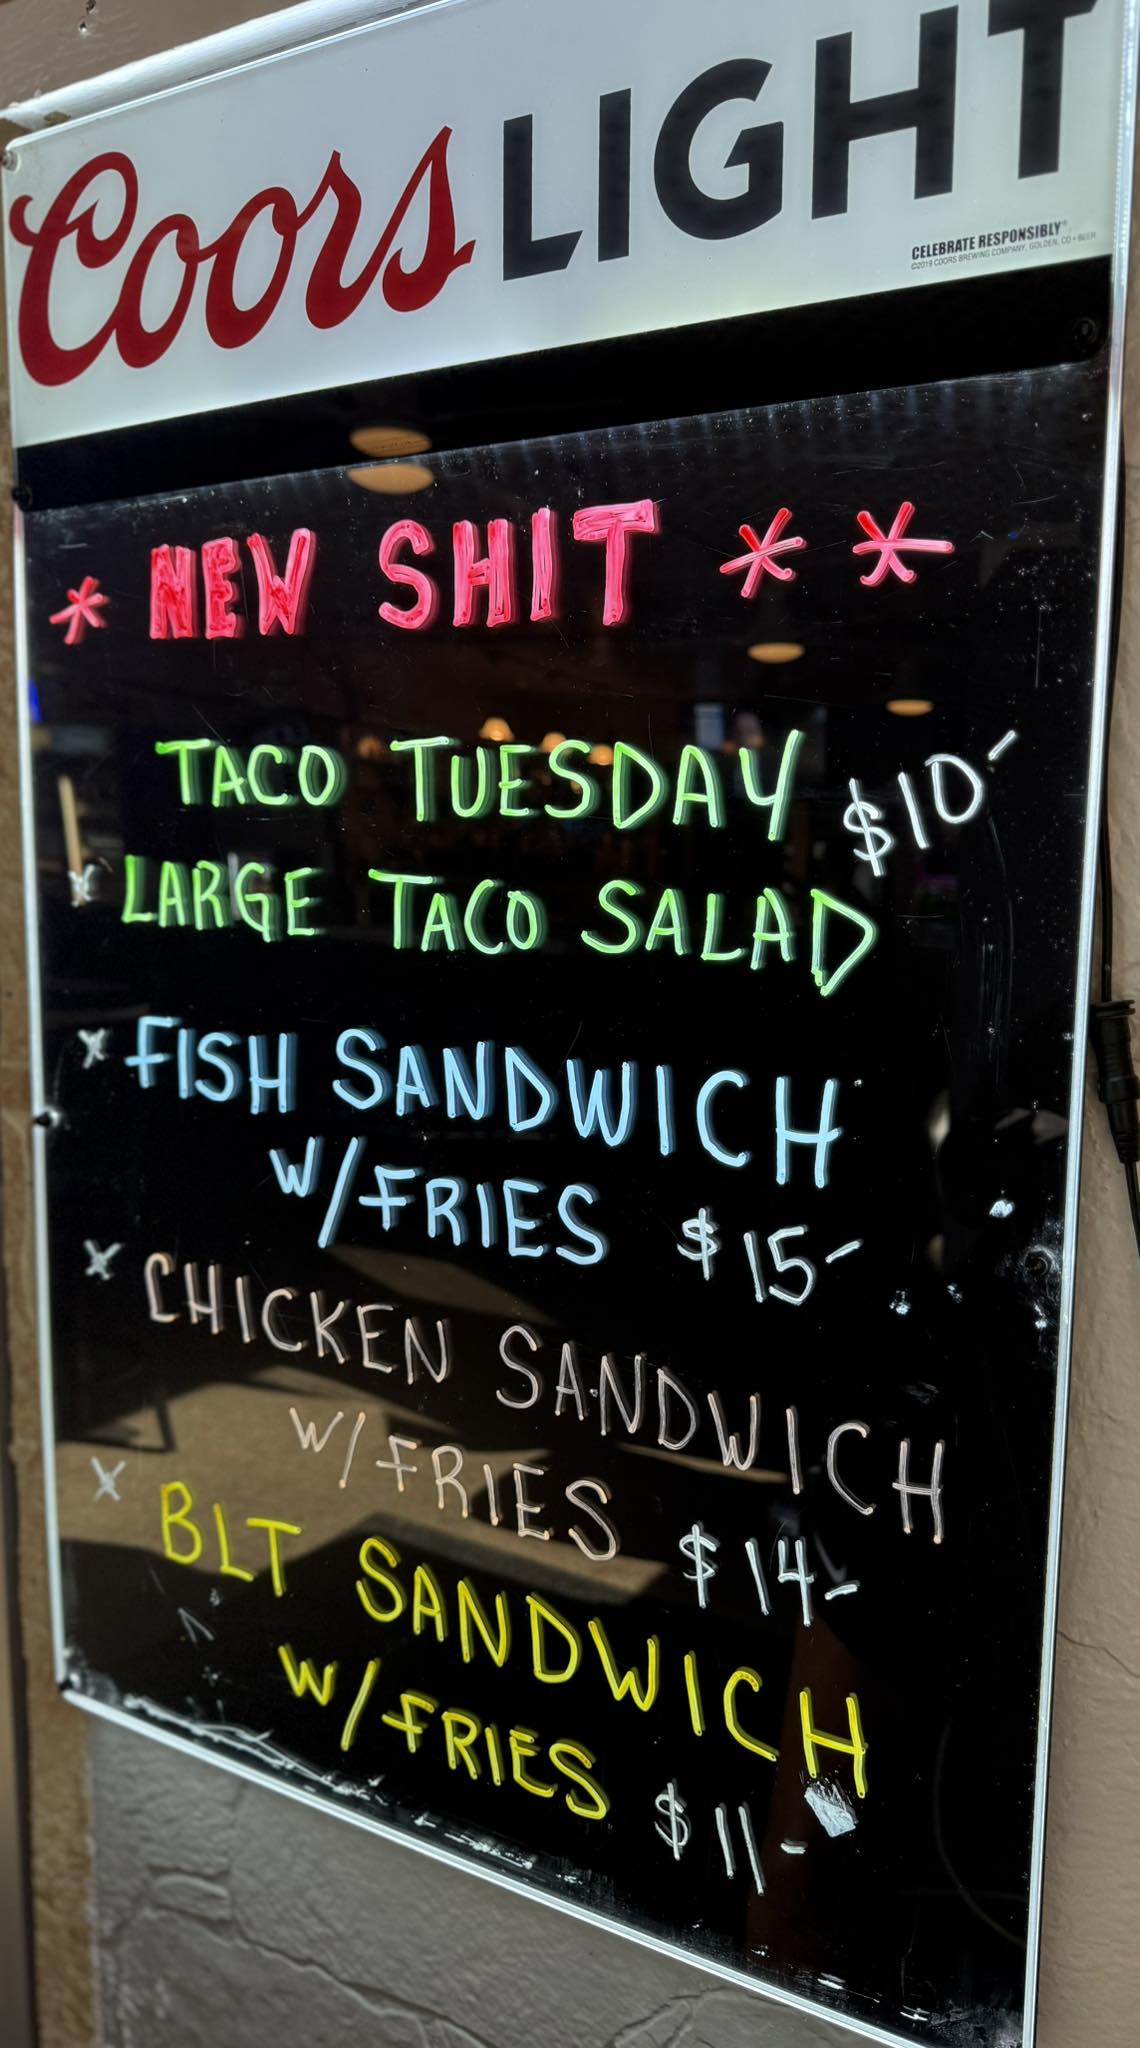 Coors LIGHT
CELEBRATE RESPONSIBLY®
©2019 COORS BREWING COMPANY, GOLDEN, CO • BEER
* NEW SHIT * *
TACO TUESDAY $10-
x LARGE TACO SALAD
x FISH SANDWICH
W/FRIES $15-
x CHICKEN SANDWICH
W/FRIES $14-
x BLT SANDWICH
W/FRIES $11-